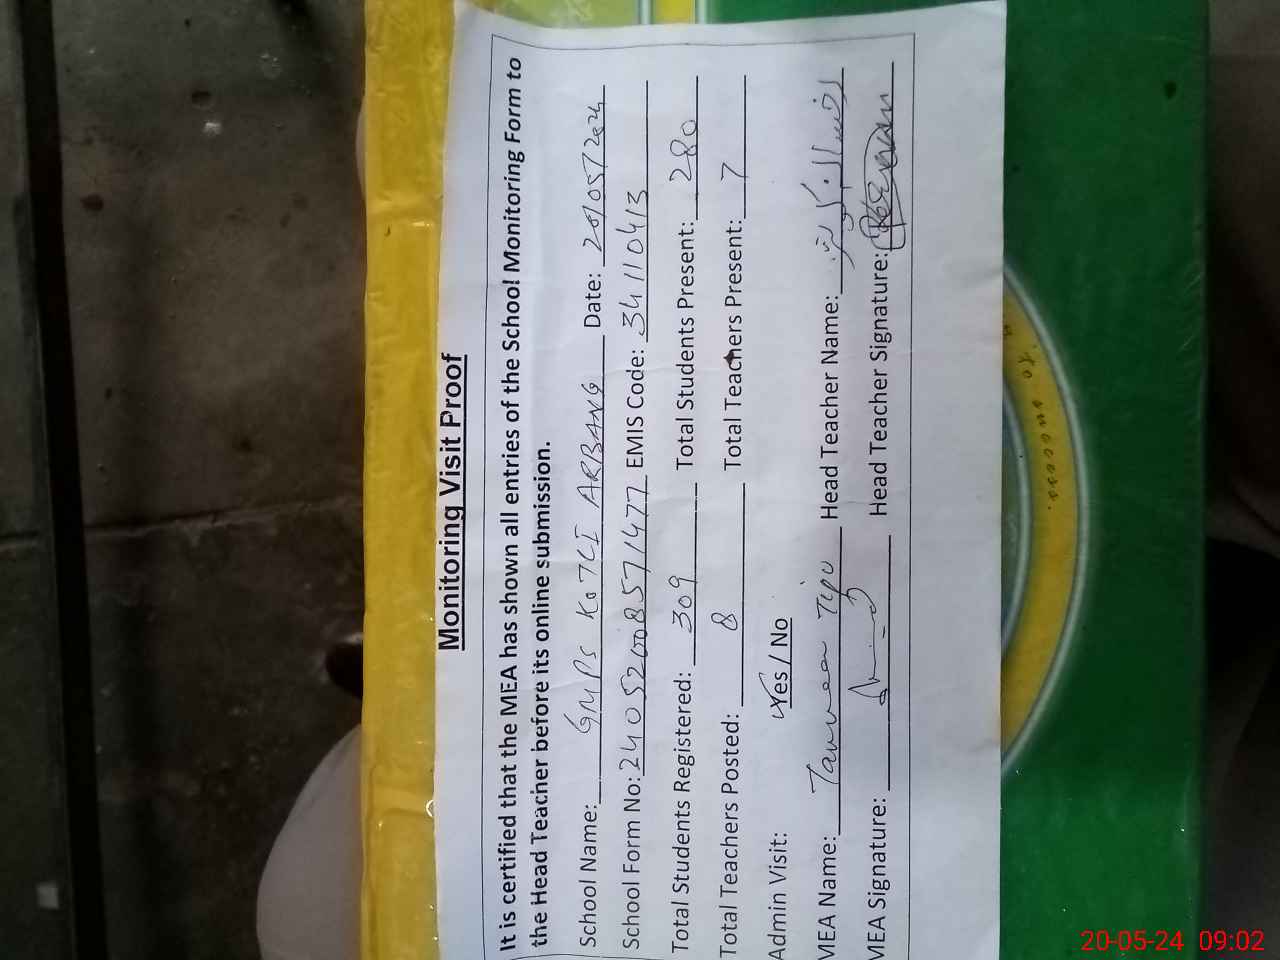 Monitoring Visit Proof
It is certified that the MEA has shown all entries of the School Monitoring Form to
the Head Teacher before its online submission.
School Name: GMPS KOTLI ARBANG Date: 20/05/2024
School Form No: 24052008571477 EMIS Code: 34110413
Total Students Registered: 309 Total Students Present: 280
Total Teachers Posted: 8 Total Teachers Present: 7
Admin Visit: Yes / No
MEA Name: Tanveer Tipu Head Teacher Name:
MEA Signature: Head Teacher Signature:
20-05-24 09:02